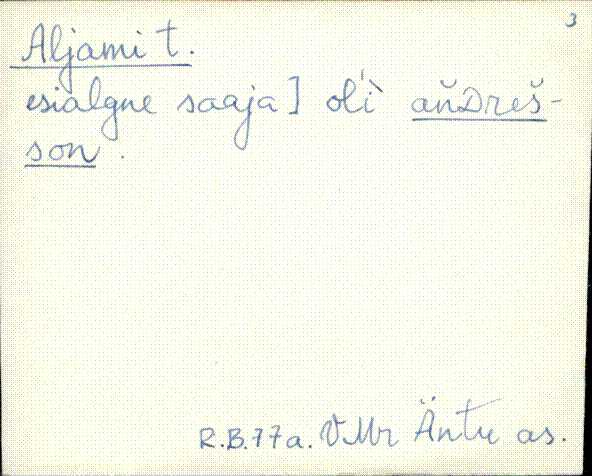 3
Aljami t.
esialgne saaja] ol'ì añDreš-
son.
R.B.77a. VMr Äntu as.